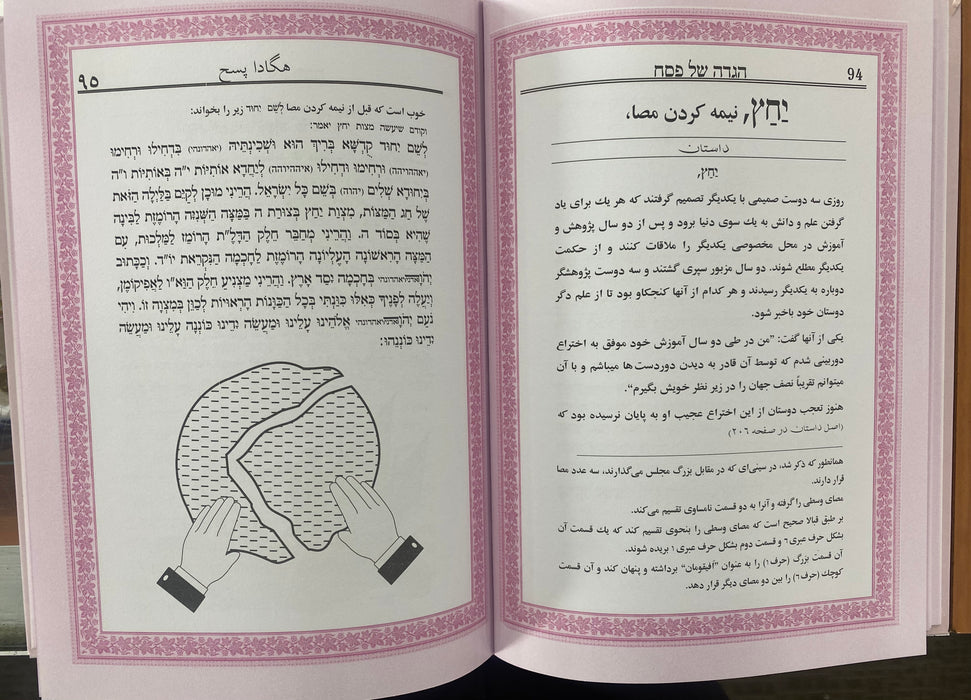 94
הגדה של פסח
יַחַץ, نیمه کردن مصا،
داستان
יַחַץ,
روزی سه دوست صمیمی با یکدیگر تصمیم گرفتند که هر یك برای یاد
گرفتن علم و دانش به یك سوی دنیا برود و پس از دو سال پژوهش و
آموزش در محل مخصوصی یکدیگر را ملاقات کنند و از حکمت
یکدیگر مطلع شوند. دو سال مزبور سپری گشتند و سه دوست پژوهشگر
دوباره به یکدیگر رسیدند و هر کدام از آنها کنجکاو بود تا از علم دگر
دوستان خود باخبر شود.
یکی از آنها گفت: ”من در طی دو سال آموزش خود موفق به اختراع
دوربینی شدم که توسط آن قادر به دیدن دوردست ها میباشم و با آن
میتوانم تقریباً نصف جهان را در زیر نظر خویش بگیرم“.
هنوز تعجب دوستان از این اختراع عجیب او به پایان نرسیده بود که
(اصل داستان در صفحه ٢٠٦)
همانطور که ذکر شد، در سینی‌ای که در مقابل بزرگ مجلس می‌گذارند، سه عدد مصا
قرار دارند.
مصای وسطی را گرفته و آنرا به دو قسمت نامساوی تقسیم می‌کند.
بر طبق قبالا صحیح است که مصای وسطی را بنحوی تقسیم کند که یك قسمت آن
بشکل حرف عبری ٦ و قسمت دوم بشکل حرف عبری ١ بریده شوند.
آن قسمت بزرگ (حرف ١) را به عنوان ”آفیقومان“ برداشته و پنهان کند و آن قسمت
کوچك (حرف ٦) را بین دو مصای دیگر قرار دهد.
هگادا پسح
٩٥
خوب است که قبل از نیمه کردن مصا לְשֵׁם יִחוּד زیر را بخواند:
וקודם שיעשה מצות יחץ יאמר:
לְשֵׁם יִחוּד קֻדְשָׁא בְּרִיךְ הוּא וּשְׁכִינְתֵּיהּ (יאהדונהי) בִּדְחִילוּ וּרְחִימוּ
(יאההויהה) וּרְחִימוּ וּדְחִילוּ (איההיוהה) לְיַחֲדָא אוֹתִיּוֹת י"ה בְּאוֹתִיּוֹת ו"ה
בְּיִחוּדָא שְׁלִים (יהוה) בְּשֵׁם כָּל יִשְׂרָאֵל. הֲרֵינִי מוּכָן לְקַיֵּם בַּלַּיְלָה הַזֹּאת
שֶׁל חַג הַמַּצּוֹת, מִצְוַת יַחַץ בְּצוּרַת ה בַּמַּצָּה הַשְּׁנִיָּה הָרוֹמֶזֶת לַבִּינָה
שֶׁהִיא בְּסוֹד ה. וַהֲרֵינִי מְחַבֵּר חֵלֶק הַדָּלֶ"ת הָרוֹמֵז לַמַּלְכוּת, עִם
הַמַּצָּה הָרִאשׁוֹנָה הָעֶלְיוֹנָה הָרוֹמֶזֶת לַחָכְמָה הַנִּקְרֵאת יוֹ"ד. וְכַכָּתוּב
בְּחָכְמָה יָסַד אָרֶץ. וַהֲרֵינִי מַצְנִיעַ חֵלֶק הַוָּא"ו לַאֲפִיקוֹמָן,
וְיַעֲלֶה לְפָנֶיךָ כְּאִלּוּ כִּוַּנְתִּי בְּכָל הַכַּוָּנוֹת הָרְאוּיוֹת לְכַוֵּן בְּמִצְוָה זוֹ. וִיהִי
נֹעַם אֱלֹהֵינוּ עָלֵינוּ וּמַעֲשֵׂה יָדֵינוּ כּוֹנְנָה עָלֵינוּ וּמַעֲשֵׂה
יָדֵינוּ כּוֹנְנֵהוּ: